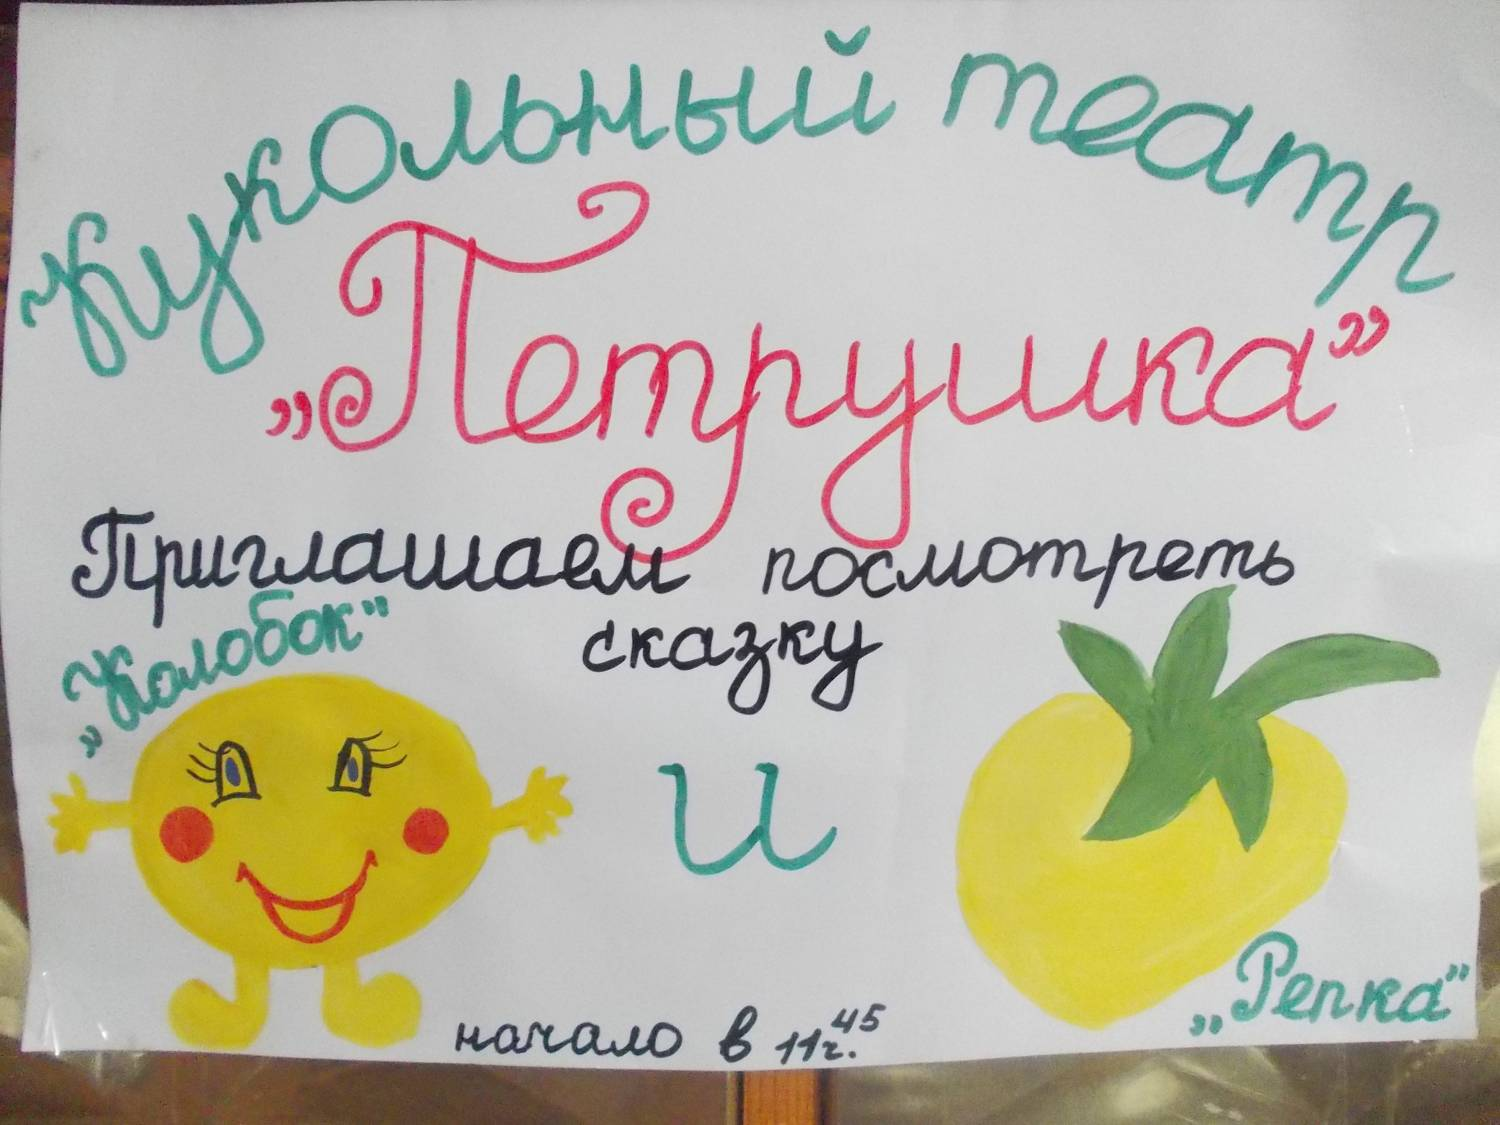 Кукольный театр
„Петрушка”
Приглашаем посмотреть
сказку
„Колобок"
и
„Репка"
начало в 11ч.45